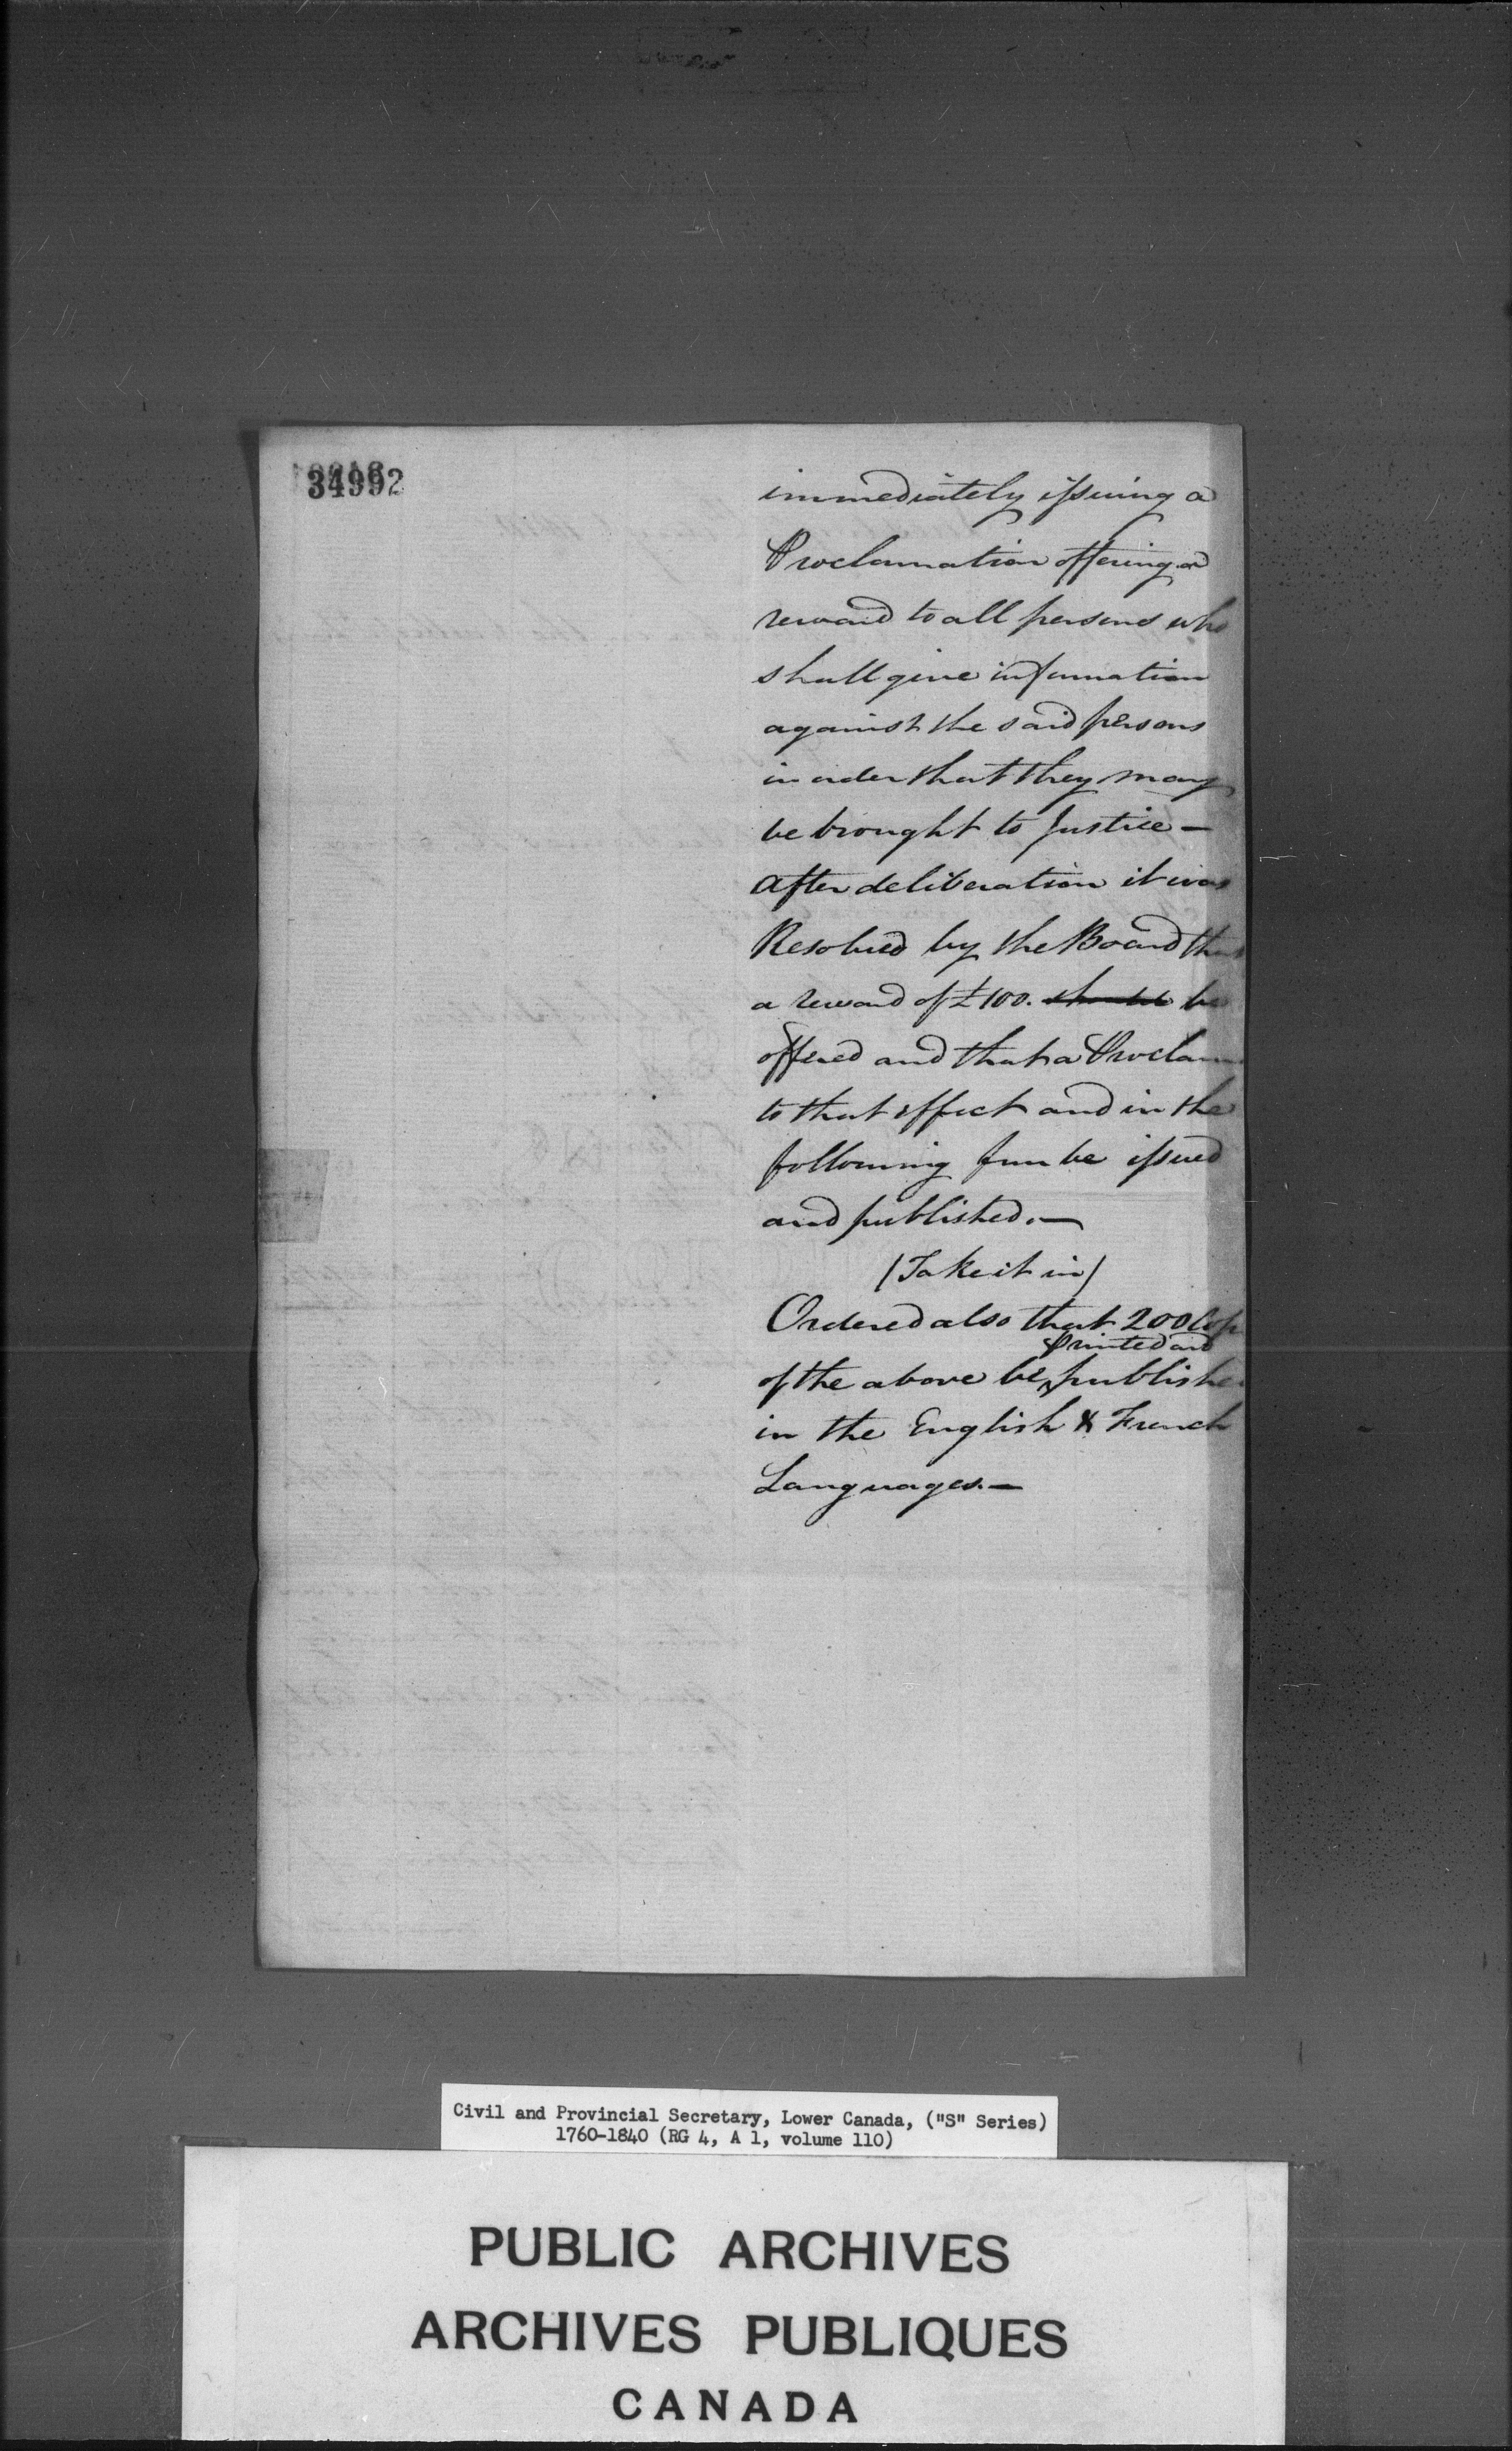 34992
immediately issuing a
Proclamation offering a
reward to all persons who
shall give information
against the said persons
in order that they may
be brought to Justice —
After deliberation it was
Resolved by the Board that
a reward of £100. should be
offered and that a Proclam
to that effect and in the
following form be issued
and published. —
(Take it in)
Ordered also that 200 Cop
printed and
of the above be publishe
in the English & French
Languages. —
Civil and Provincial Secretary, Lower Canada, ("S" Series)
1760-1840 (RG 4, A 1, volume 110)
PUBLIC ARCHIVES
ARCHIVES PUBLIQUES
CANADA